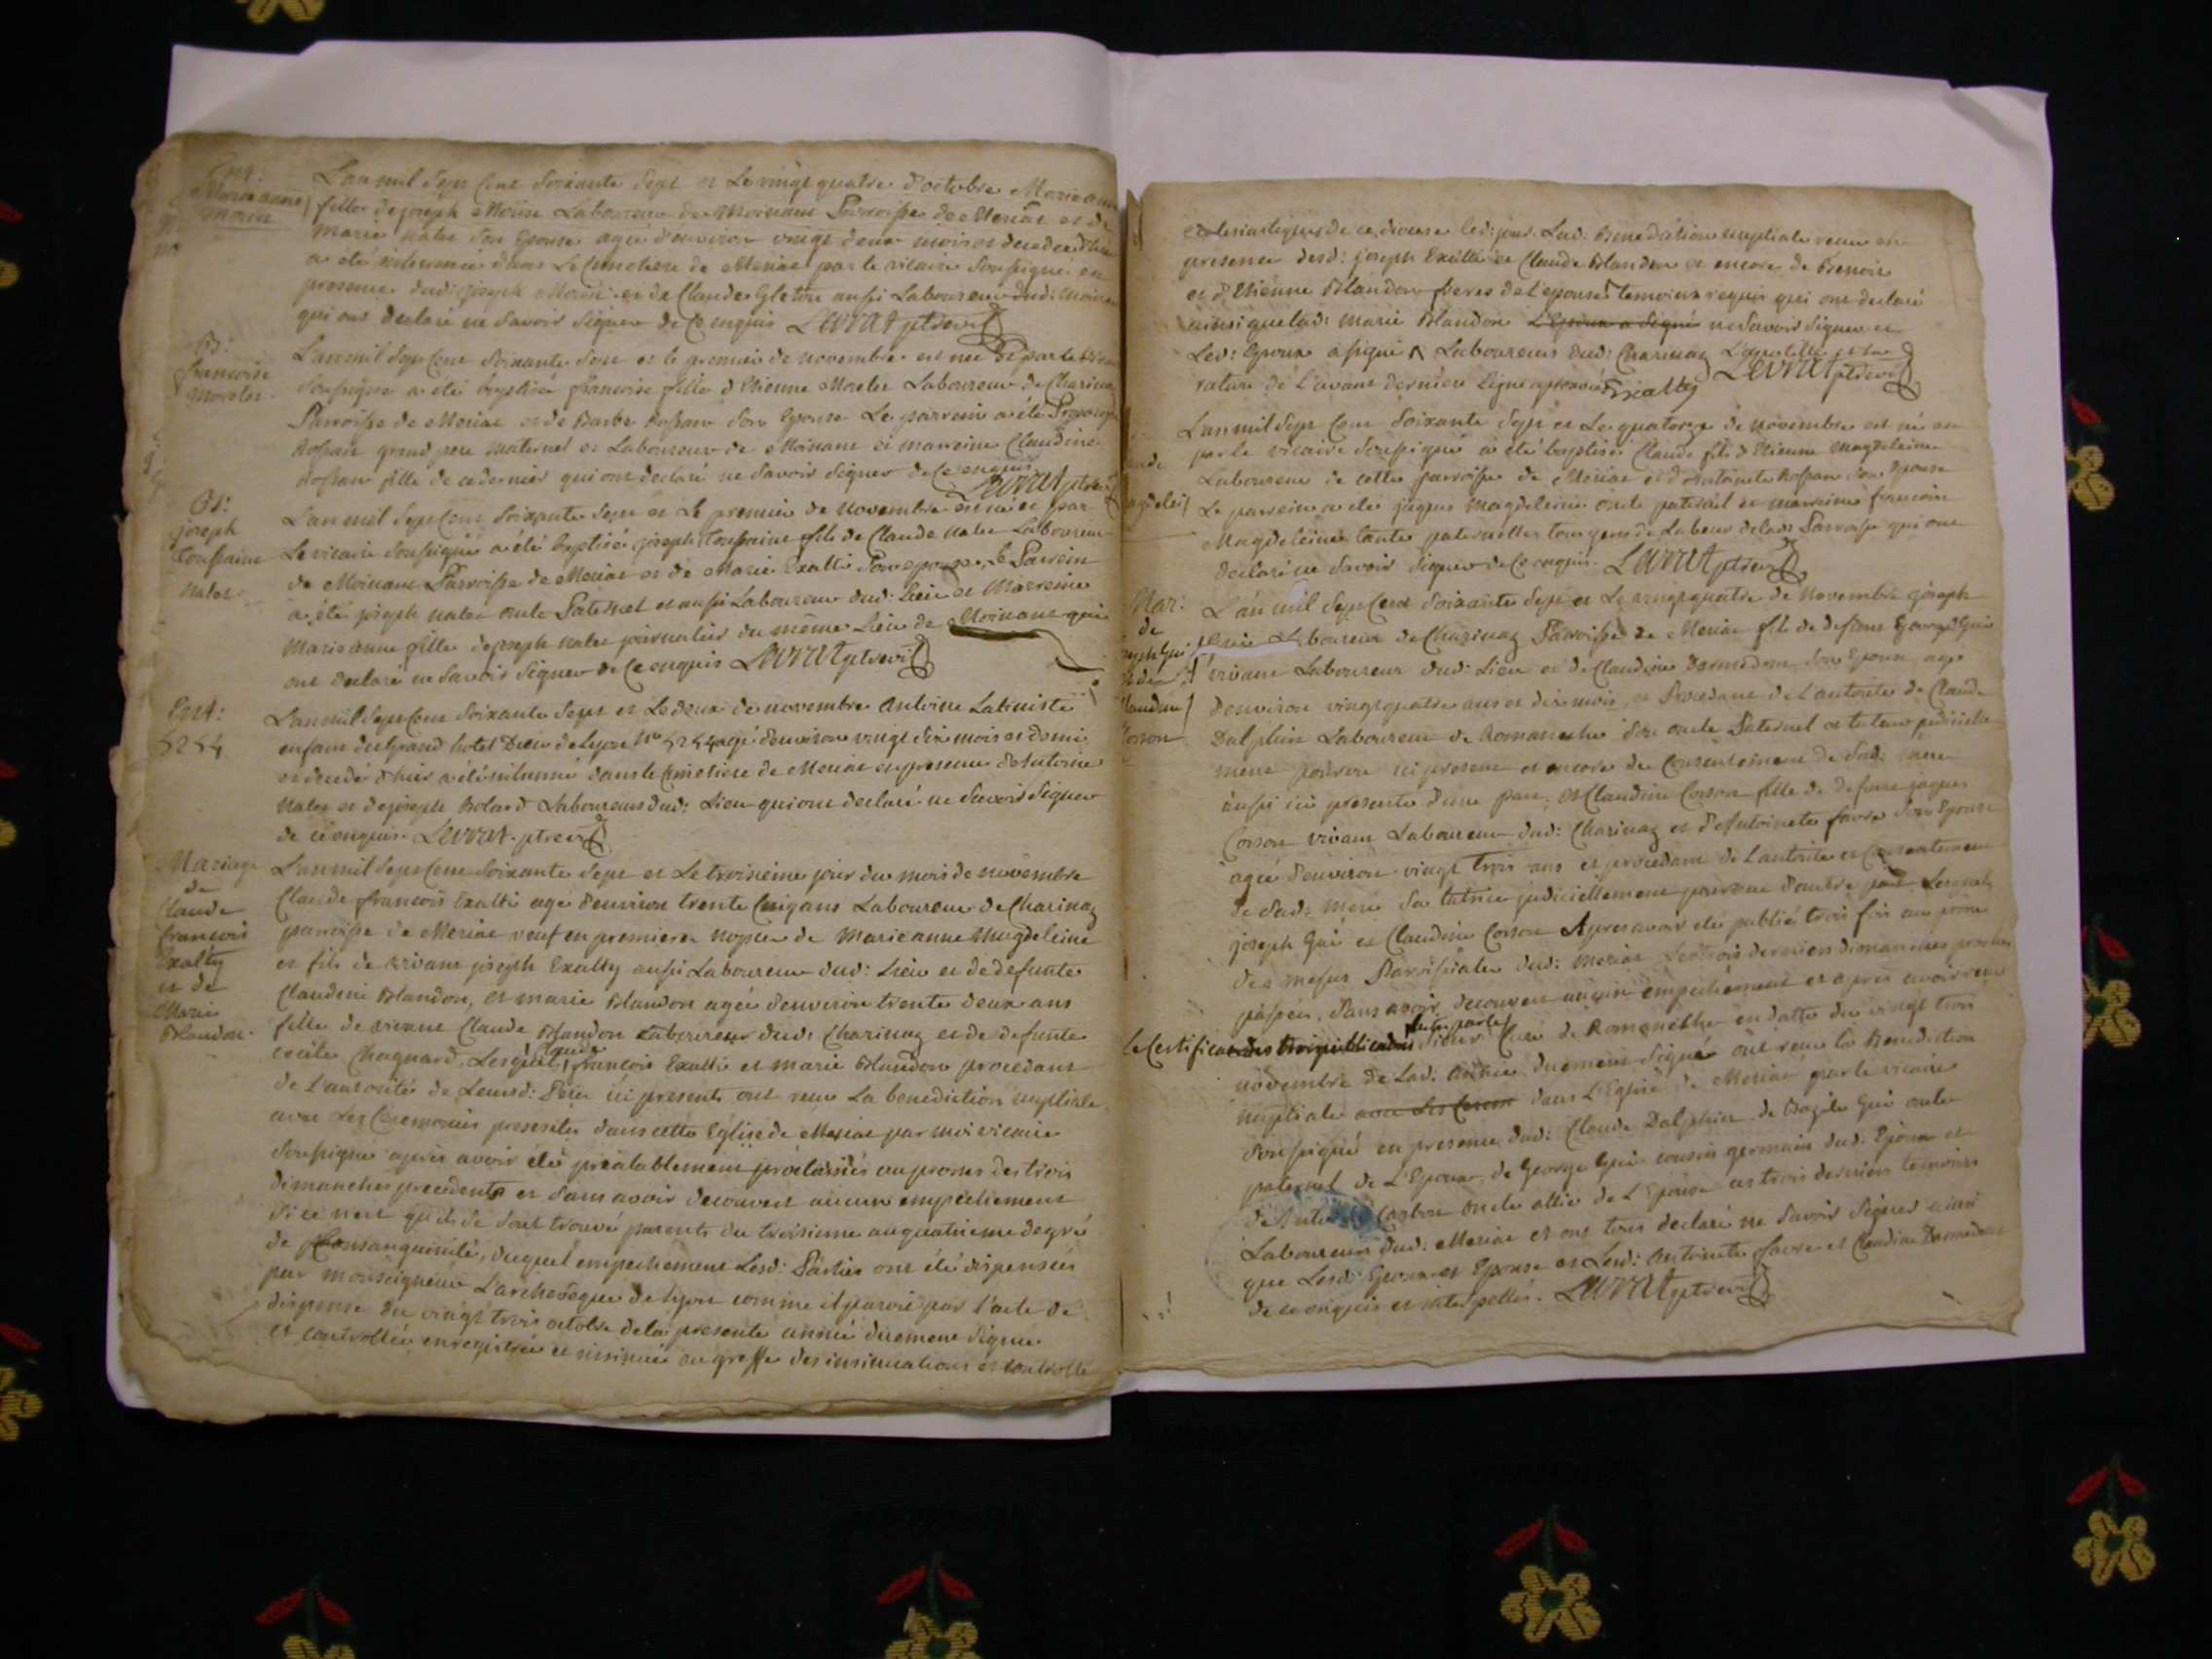 Ent.
Marie anne
Moine
L'an mil Sept Cent Soixante Sept et Le vingt quatre d'octobre Marie anne
fille de joseph Moine Laboureur de Moinans Parroisse de Meriat et de
Marie nalet Son Epouse agée d'environ vingt deux mois et decedée d'hier
a eté inhumée dans Le Cimetiere de Meriat par le vicaire Soussigné en
presence dud: joseph Moine et de Claude Gleton aussi Laboureur dud: Moinans
qui ont declaré ne Savoir Signer de Ce enquis Levrat ptre vic
B:
francoise
Morelet
L'an mil Sept Cent Soixante Sept et le premier de novembre est née et par le vicaire
Soussigné a eté baptisée francoise fille d'Etienne Morelet Laboureur de Charinaz
Parroisse de Meriat et de Barbe Rossan Son Epouse Le parrein a eté
Rossan grand pere maternel et Laboureur de Moinans et marreine Claudine
Rossan fille de ce dernier qui ont declaré ne Savoir Signer de Ce enquis
Levrat ptre vic
B:
joseph
toussaint
nalet
L'an mil Sept Cent Soixante Sept et Le premier de novembre est né et par
Le vicaire Soussigné a été baptisé joseph toussaint fils de Claude nalet Laboureur
de Moinans Parroisse de Meriat et de Marie Exalti Son epouse, Le Parrein
a été joseph nalet oncle Paternel et aussi Laboureur dud: Lieu et Marreine
Marie anne fille de joseph nalet journalier du même Lieu de Moinans qui
ont declaré ne Savoir Signer de Ce enquis Levrat ptre vic
Ent:
5254
L'an mil Sept Cent Soixante Sept et Le deux de novembre Antoine Labiniste
enfant du Grand hotel Dieu de Lyon No 5254 agé d'environ vingt dix mois et demi
et decedé d'hier a été inhumé dans le Cimetiere de Meriat en presence d'Antoine
nalet et de joseph Bolard Laboureurs dud: Lieu qui ont declaré ne Savoir Signer
de ce enquis. Levrat ptre vic
Mariage
de
Claude
francois
Exalty
et de
Marie
Blandon
L'an mil Sept Cent Soixante Sept et Le troisieme jour du mois de novembre
Claude francois Exalti agé d'environ trente Cinq ans Laboureur de Charinaz
parroisse de Meriat veuf en premiere nopces de Marie anne Magdeleine
et fils de vivant joseph Exalty aussi Laboureur dud: Lieu et de defunte
Claudine Blandon, et marie Blandon agée d'environ trente deux ans
fille de vivant Claude Blandon Laboureur dud: Charinaz et de defunte
cecile Chagnard, Lesquels Claude francois Exalti et marie Blandon procedant
de l'autorité de Leursd: Peres ici presents ont recu La benediction nuptiale
avec Les Ceremonies prescrites dans cette Eglise de Meriat par moi vicaire
Soussigné après avoir été préalablement proclamés aux prones des trois
dimanches precedents et Sans avoir decouvert aucun empechement
Si ce n'est qu'ils se sont trouvé parents du troisieme au quatrieme degré
de Consanguinité, duquel empechement Lesd: Parties ont été dispensées
par Monseigneur L'archeveque de Lyon comme il paroit par l'acte de
dispense du vingt trois octobre de la presente année duement Signée
et controllée enregistrée et insinuée au greffe des insinuations et controlle
ecclesiastiques de ce diocese led: jour. Lad: Benediction nuptiale recue en
presence desd: joseph Exalti et Claude Blandon et encore de Benoit
et d'Etienne Blandon freres de l'epouse temoins requis qui ont declaré
ainsi que lad: Marie Blandon L'Epoux a Signé ne Savoir Signer et
Led: Epoux a signé ^ Laboureurs dud: Charinaz L'apostille et la
rature de l'avant derniere Ligne approuvées Exalty Levrat ptre vic
L'an mil Sept Cent Soixante Sept et Le quatorze de novembre est né et
par le vicaire Soussigné a été baptisé Claude fils d'Etienne Magdeleine
Laboureur de cette parroisse de Meriat et d'Antoinete Rossan Son Epouse
Le parrein a été jaques Magdeleine oncle paternel et marreine francoise
Magdeleine tante paternelle tous gens de Labeur de lad: Parroisse qui ont
declaré ne Savoir Signer de Ce enquis. Levrat ptre vic
Mar:
de
joseph Gui
et de
Claudine
Corson
L'an mil Sept Cent Soixante Sept et Le vingt quatre de Novembre joseph
Gui Laboureur de Charinaz Parroisse de Meriat fils de defunt George Gui
vivant Laboureur dud: Lieu et de Claudine Darmedon Son Epouse agé
d'environ vingt quatre ans et dix mois, et Procedant de l'autorité de Claude
Dalphin Laboureur de Romaneche Son oncle Paternel et tuteur judicielle
ment pourvu ici present et encore du Consentement de Sad: mere
aussi ici presente d'une part, et Claudine Corson fille de defunt jaques
Corson vivant Laboureur dud: Charinaz et d'Antoinete favre Son Epouse
agée d'environ vingt trois ans et procedant de l'autorité et Consentement
de Sad: Mere Sa tutrice judiciellement pourvue d'autre part Lesquels
joseph Gui et Claudine Corson Apres avoir été publié trois fois au prone
des messes Parroissiales dud: Meriat Les trois derniers dimanches prochain
passés, Sans avoir decouvert aucun empechement et apres avoir recu
Le Certificat des trois publications faites par le Sieur Curé de Romaneche en datte du vingt trois
novembre de Lad. Année duement Signé ont recu la Benediction
nuptiale avec Les Cerem dans L'Eglise de Meriat par le vicaire
Soussigné en presence dud: Claude Dalphin de Bazile Gui oncle
paternel de L'Epoux, de George Gui cousin germain dud: Epoux et
Corbon oncle allié de L'Epouse Les trois derniers temoins
Laboureurs dud: Meriat et ont tous declaré ne Savoir Signer ainsi
que Lesd: Epoux et Epouse et Lesd: Antoinete favre et Claudine Darmedon
de ce enquis et interpellés. Levrat ptre vic